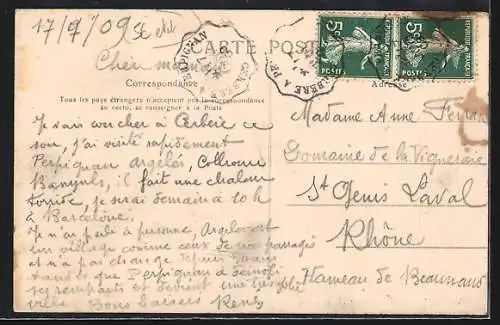 17/7/09
CARTE POSTALE
Chère maman
Correspondance
Tous les pays étrangers n'acceptent pas la correspondance
au recto, se renseigner à la Poste
Je vais coucher à Cerbère ce
soir, j'ai visité rapidement
Perpignan Argelès, Collioure
Banyuls, il fait une chaleur
torride, je serai demain à 10 h
à Barcelone.
Je n'ai parlé à personne Argelès est
un village comme ceux de nos parages
et n'a pas changé depuis
tandis que Perpignan a démoli
ses remparts et devient une très jolie
ville Bons baisers René
5c 5c
POSTES POSTES
REPUBLIQUE FRANÇAISE
CERBERE A PERPIGNAN
Madame Anne Ferran
Domaine de la Vigneraie
St Genis Laval
Rhône
Hameau de Beaunand